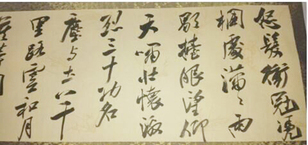 怒髮衝冠憑
欄處瀟々雨
歇抬眼望仰
天嘯壯懷激
烈三十功名
塵与土八千
里路雲和月